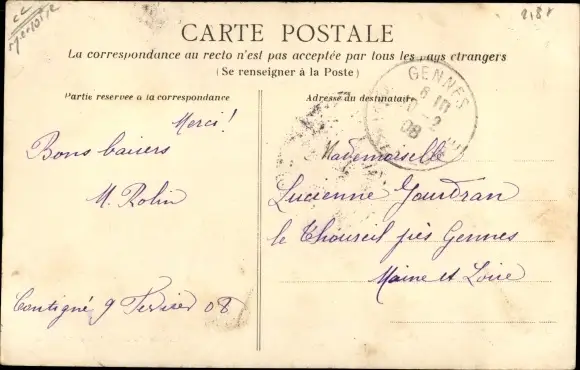 CARTE POSTALE
La correspondance au recto n'est pas acceptée par tous les pays étrangers
(Se renseigner à la Poste)
Partie réservée à la correspondance
Merci!
Bons baisers
M. Rolin
Contigné 9 Février 08
Adresse du destinataire
GENNES
08
Mademoiselle
Lucienne Gourdran
le Thoureil près Gennes
Maine et Loire